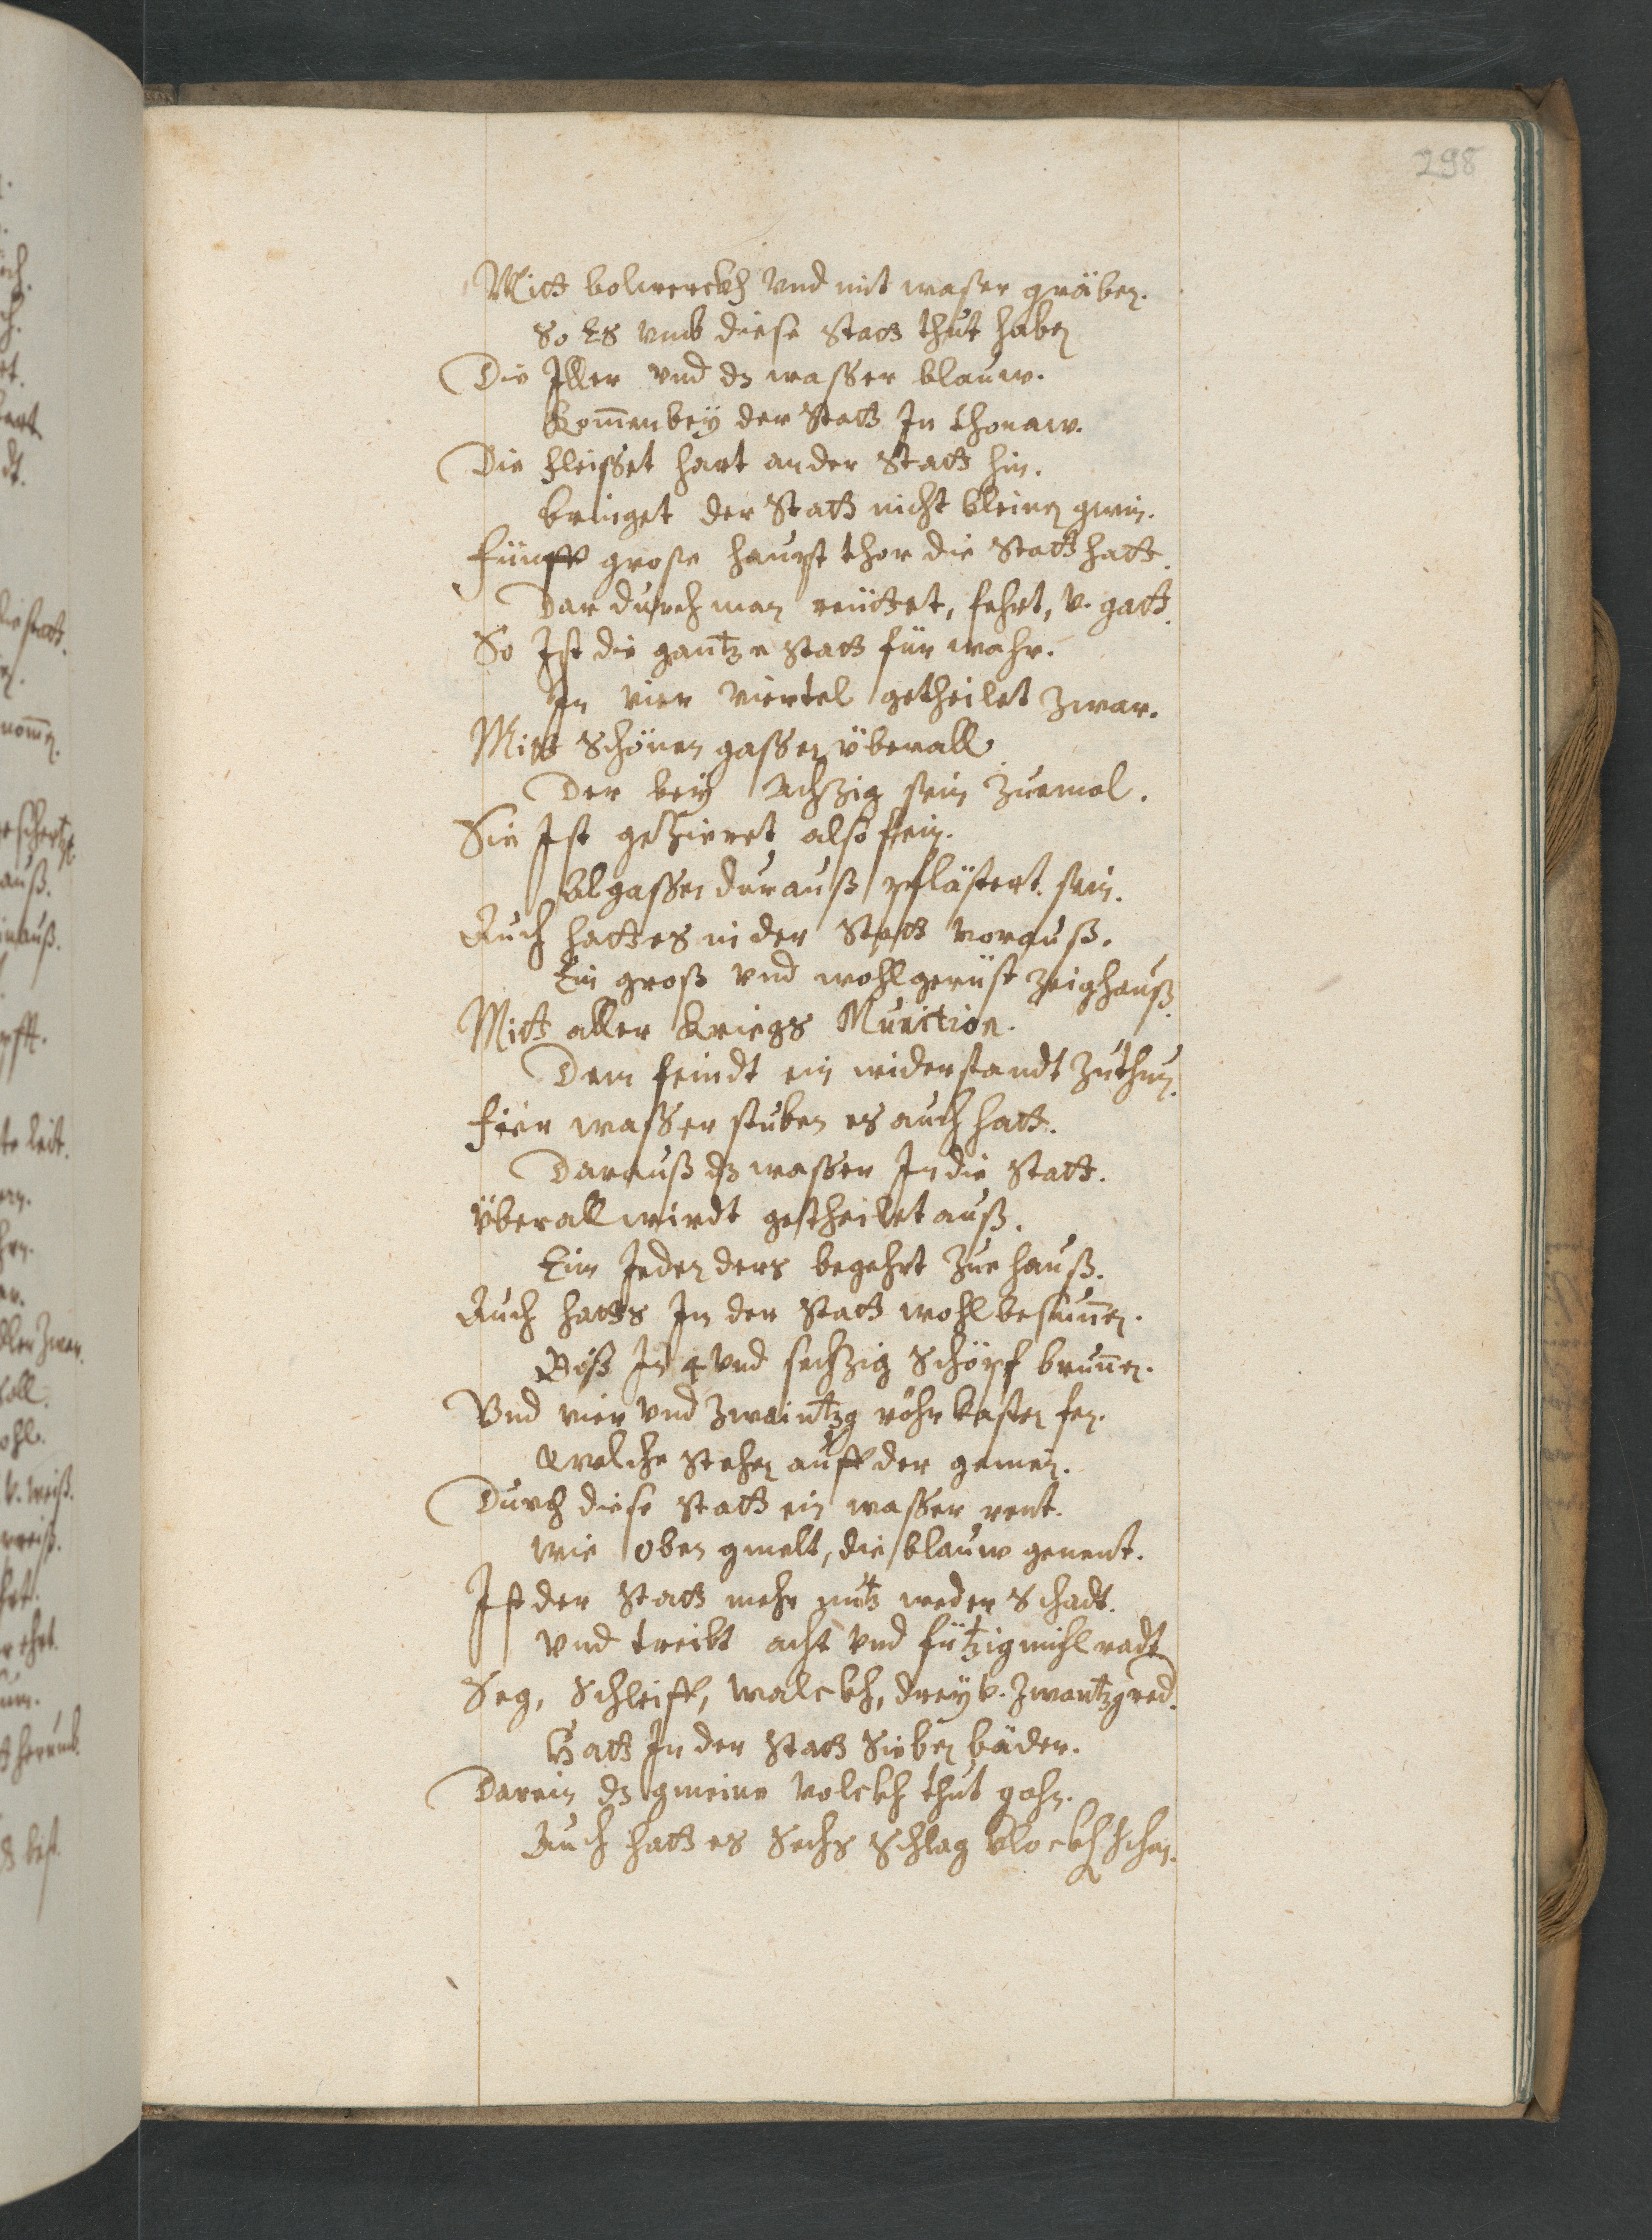 298
Mitt bolwerckh vnd mit waßer gräben.
So Es vmb diese Statt thut haben
Die Iller vnd dz wasser blauw.
kom̄en bey der Statt In thonaw.
Die fleisset hart an der Statt hin.
bringet der Statt nicht kleinen gwin.
fünff große haupt thor die Statt hatt.
Dar durch man reüttet, fehrt, v. gatt.
So Ist die gantze Statt für wahr.
In vier viertel getheilet zwar.
Mitt Schönen gassen überall
Der bey Achzig sein zuemol.
Sie Ist gezieret also fein.
all gassen durauß pflästert sein.
Auch hatt es in der Statt vorauß.
Ein groß vnd wohlgerüst zeighauß.
Mitt aller kriegs Munition.
Dem feindt ein widerstandt zuthun.
fier wasser stuben es auch hatt.
Darauß dz wasser In die Statt.
Überall wirdt getheilet auß.
Eim Jeden ders begehrt zue hauß.
Auch hatts In der Statt wohl besun̄en.
Biß In 4 vnd sechzig Schöpf brun̄en.
Vnd vier vnd zwaintzg röhr kasten fen.
welche stehen auff der gemein.
Durch diese Statt ein wasser rent.
wie oben gmelt, die blauw genent.
Ist der Statt mehr nutz weder Schadt.
vnd treibt acht vnd fütffzig mihl radt.
Seg, Schleiff, walckh, drey v. zwantzg red.
Hatt In der Statt Sieben bäder.
Darein dz gmeine volckh thut gohn.
Auch hatt es Sechs Schlag klockh schon.